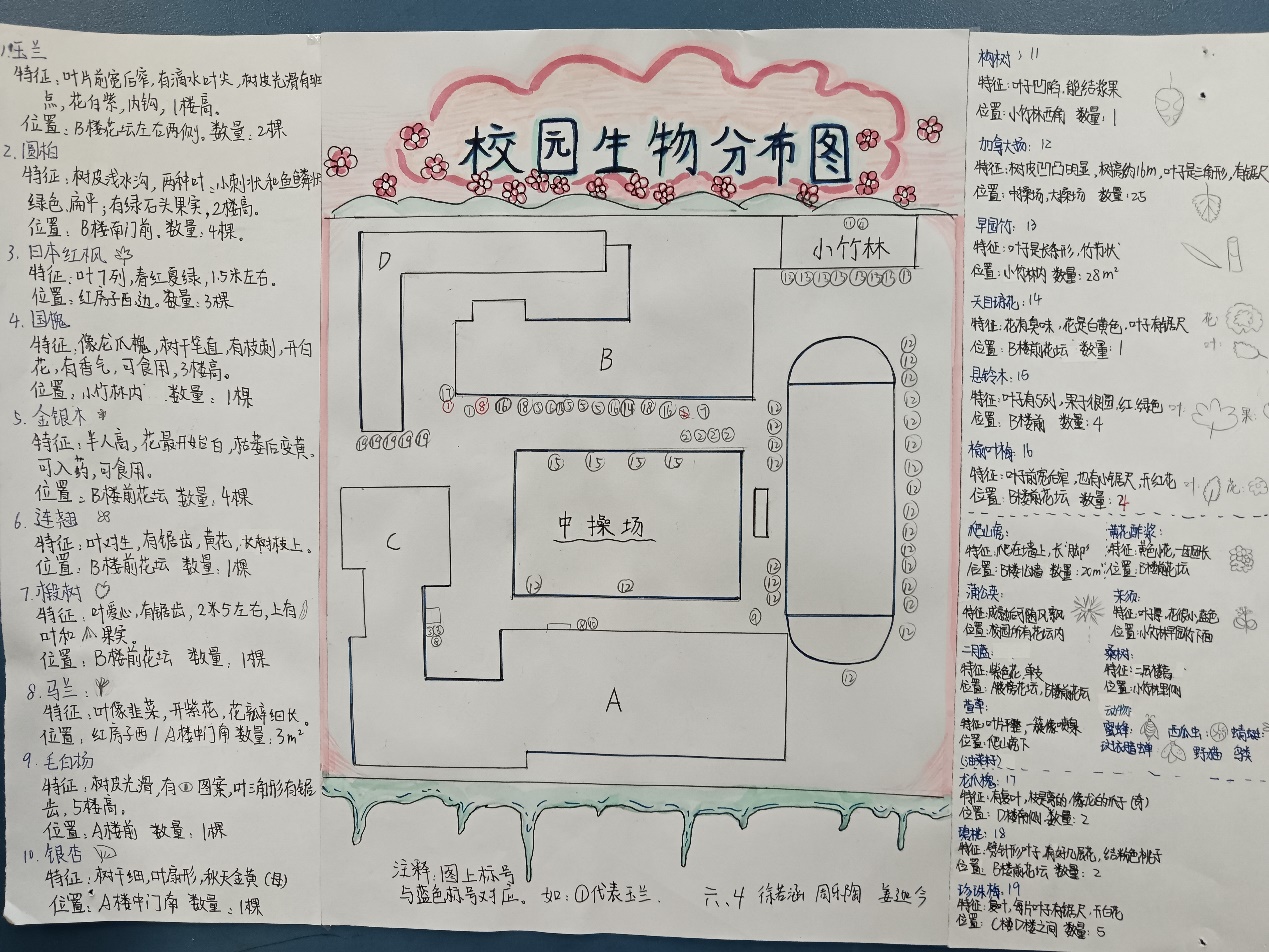 1.玉兰
特征：叶片前宽后窄，有滴水叶尖，树皮光滑有斑
点，花白紫，内钩，1楼高。
位置：B楼花坛左右两侧。数量：2棵
2.圆柏
特征：树皮浅水沟，两种叶：小刺状和鱼鳞状
绿色，扁平；有绿石头果实，2楼高。
位置：B楼南门前。数量：4棵。
3.日本红枫
特征：叶7列，春红夏绿，1.5米左右。
位置：红房子西边。数量：3棵
4.国槐
特征：像龙爪槐，树干笔直，有枝刺，开白
花，有香气，可食用，3楼高。
位置，小竹林内 数量：1棵
5.金银木
特征：半人高，花最开始白，枯萎后变黄。
可入药，可食用。
位置：B楼前花坛 数量：4棵
6.连翘
特征：叶对生，有锯齿，黄花，长树枝上。
位置：B楼前花坛 数量：1棵
7.椴树
特征：叶爱心，有锯齿，2米5左右，上有
叶和 果实。
位置：B楼前花坛 数量：1棵
8.马兰：
特征：叶像韭菜，开紫花，花瓣细长。
位置，红房子西/A楼中门南 数量：3m²
9.毛白杨
特征：树皮光滑，有 图案，叶三角形有锯
齿，5楼高。
位置：A楼前 数量：1棵
10.银杏
特征：树干细，叶扇形，秋天金黄(母)
位置：A楼中门南 数量：1棵
校园生物分布图
D
小竹林
B
中操场
C
A
注释：图上标号
与蓝色标号对应。如：①代表玉兰.
六、4 徐若涵 周乐陶
构树：11
特征：叶子凹陷，能结浆果
位置：小竹林西角 数量：1
加拿大杨：12
特征：树皮凹凸明显，树高约16m，叶子是三角形，有锯尺
位置：中操场，大操场 数量：25
早园竹：13
特征：叶子是长条形，竹节状
位置：小竹林内 数量：28m²
天目琼花：14
特征：花有臭味，花是白黄色，叶子有锯尺
花：
位置：B楼前花坛 数量：1
叶：
悬铃木：15
特征：叶子有5列，果子很圆，红，绿色
叶：
果：
位置：B楼前 数量：4
榆叶梅：16
特征：叶子前宽后窄，也有小锯尺，开红花
叶：
花：
位置：B楼前花坛 数量：4
爬山虎：
特征：爬在墙上，长"脚"
位置：B楼北墙
黄花酢浆：
特征：黄色小花
位置：B楼前花坛
蒲公英：
特征：成熟后可随风飘
位置：校园所有花坛内
特征：叶厚，花很小，蓝色
位置：小竹林早园竹下面
二月蓝：
特征：紫色花，单支
桑树：
特征：二层楼高
位置：小竹林里侧
位置：爬山虎下
(油菜籽)
动物：
蜜蜂：
西瓜虫：
蜻蜓：
野猫
龙爪槐：17
位置：D楼南侧 数量：2
碧桃：18
位置：B楼前花坛 数量：2
珍珠梅：19
特征：复叶，每片叶子有锯尺，开白花
位置：C楼D楼之间 数量：5